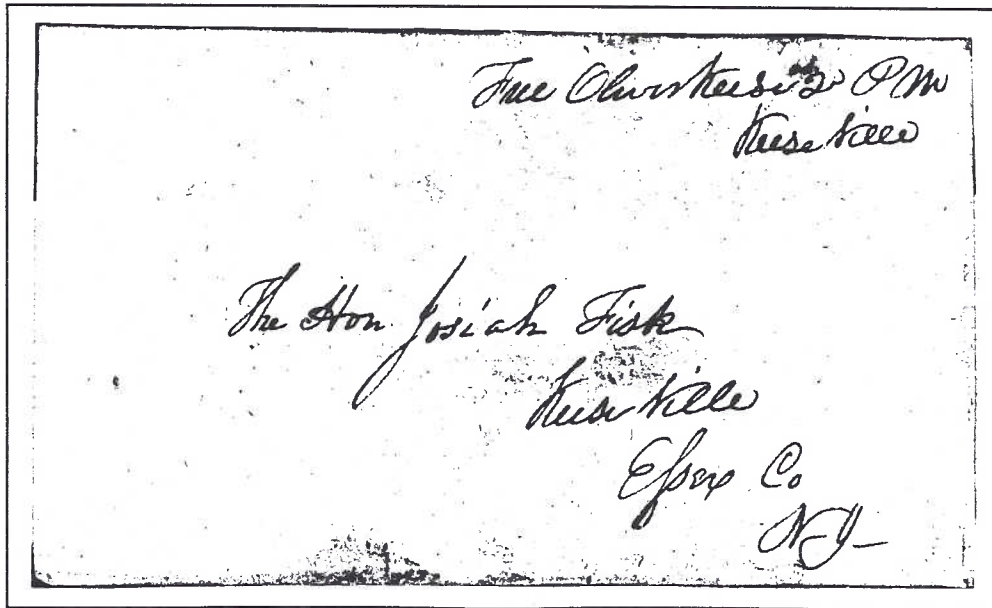 Free Oliver Keese 2d PM
Keeseville
The Hon Josiah Fisk
Keeseville
Essex Co
NY